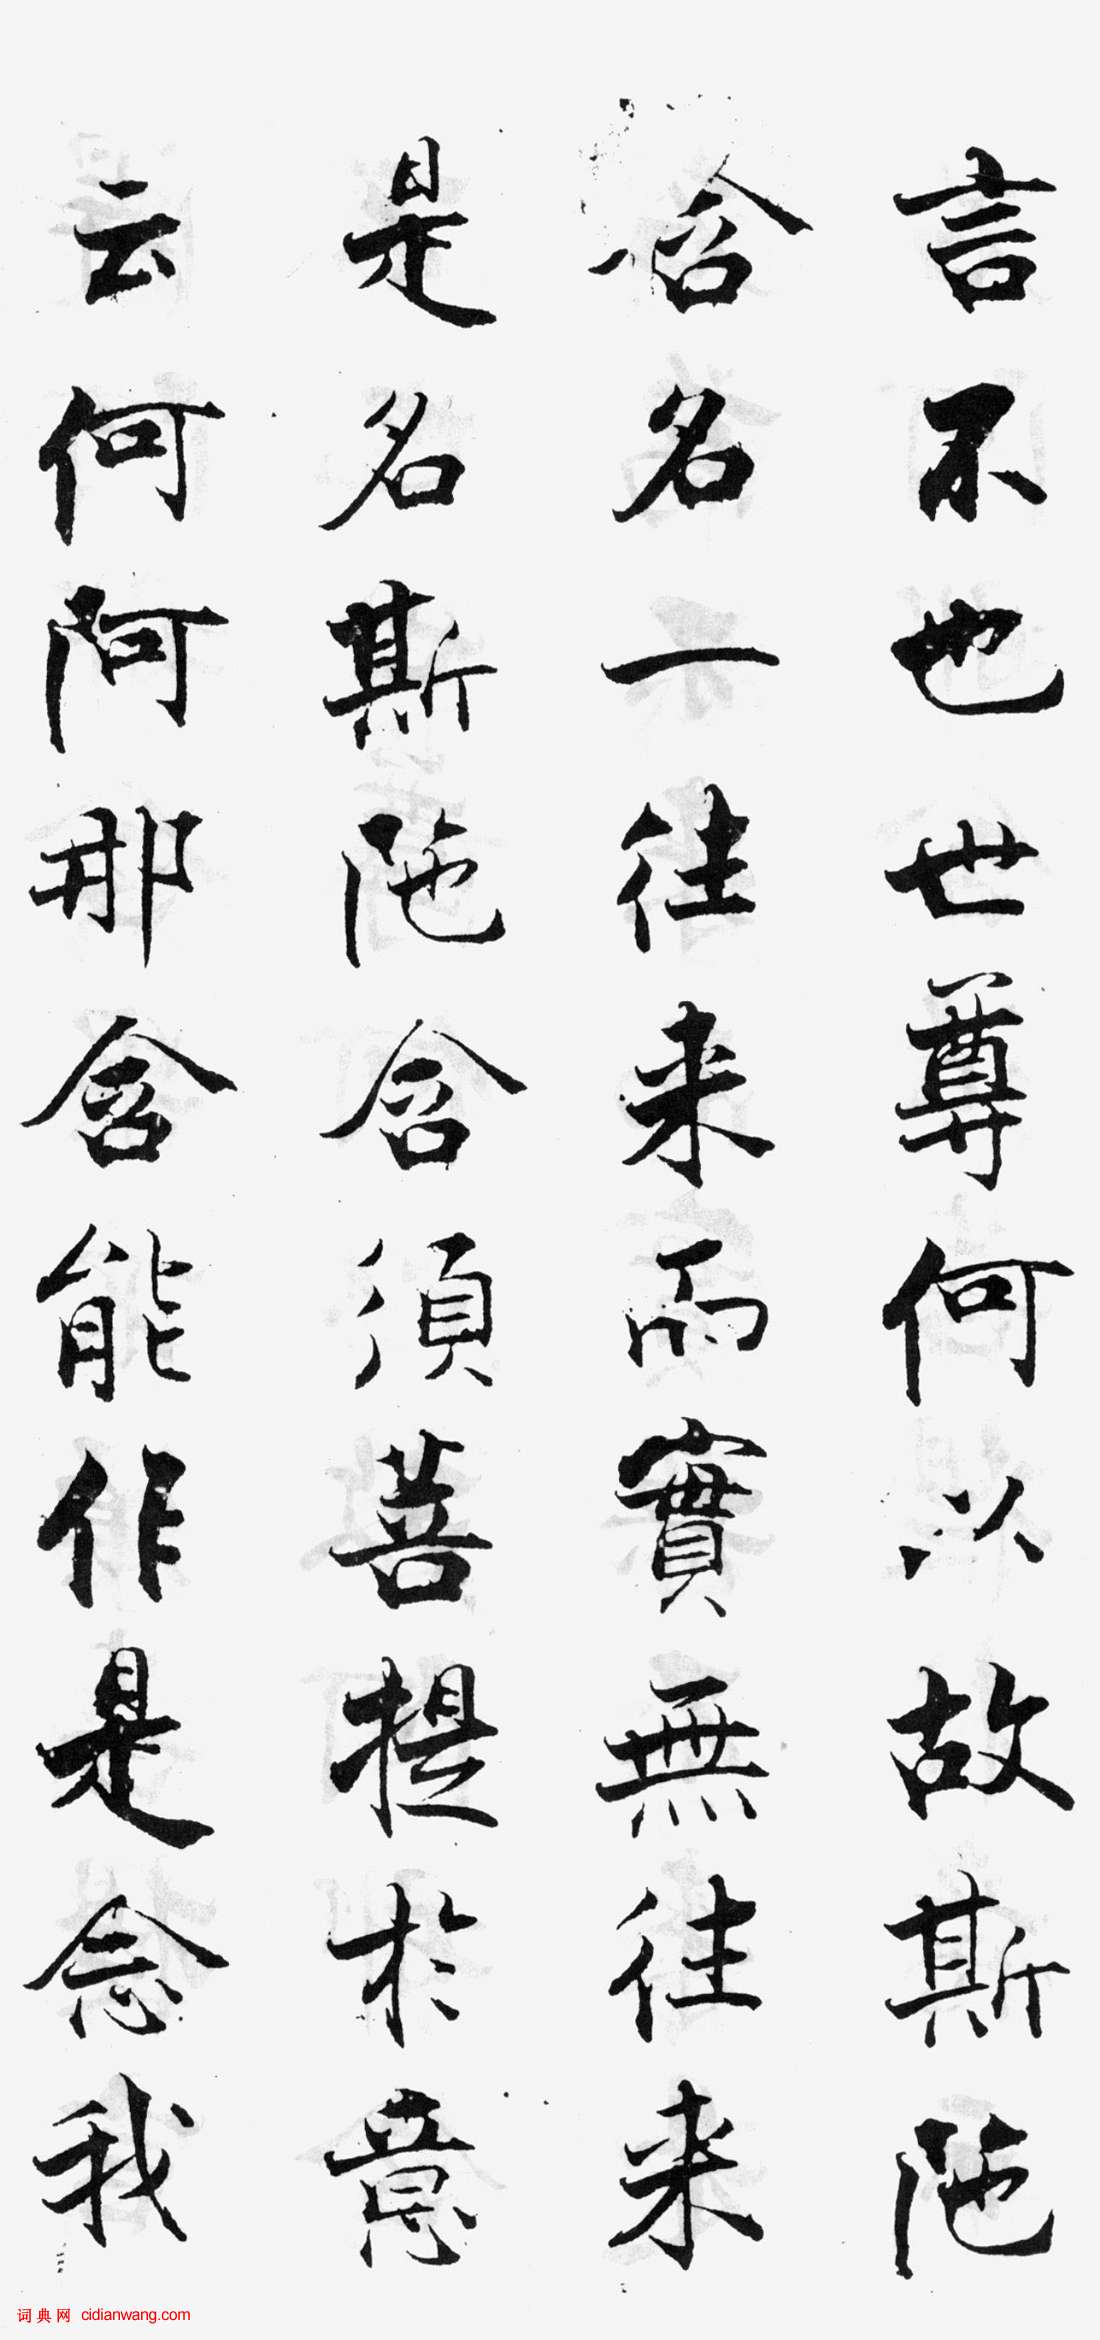 言不也世尊何以故斯陁
含名一往来而實無往来
是名斯陁含須菩提於意
云何阿那含能作是念我
词典网 cidianwang.com